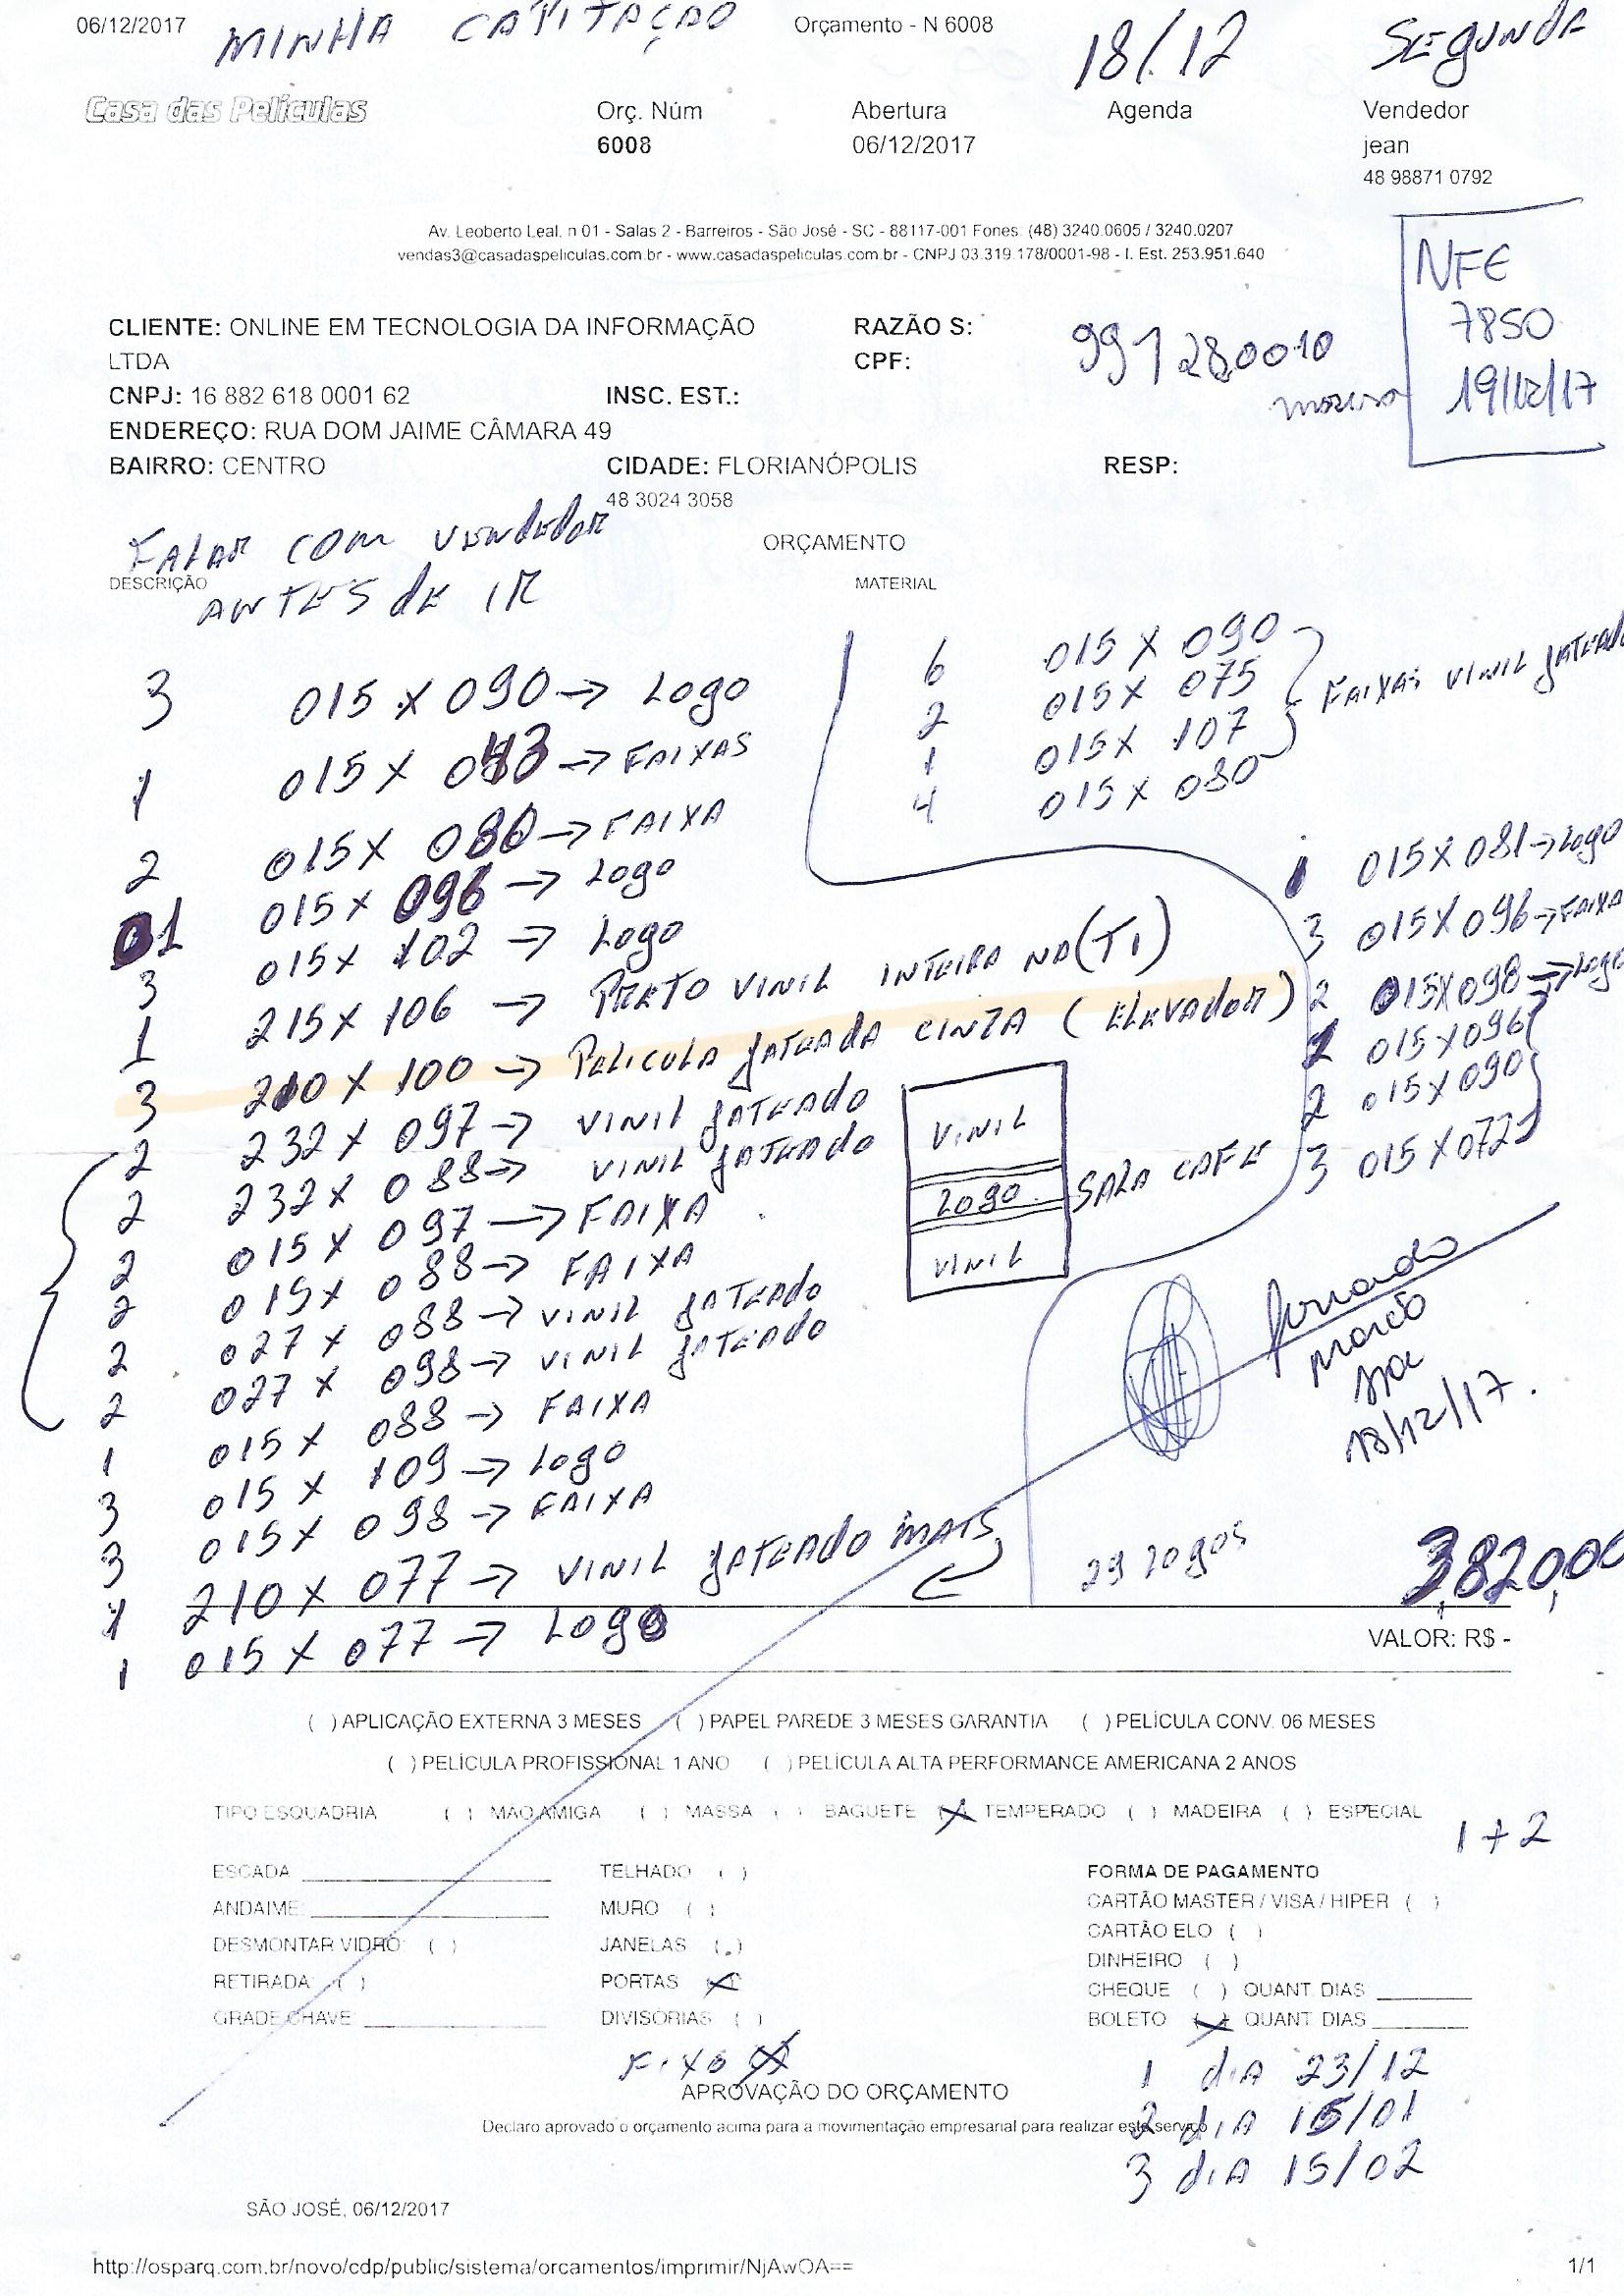 06/12/2017 MINHA CAPITAÇÃO Orçamento - N 6008 18/12 SEGUNDA
Casa das Películas
Orç. Núm Abertura Agenda Vendedor
6008 06/12/2017 jean
48 98871 0792
Av. Leoberto Leal, n 01 - Salas 2 - Barreiros - São José - SC - 88117-001 Fones: (48) 3240.0605 / 3240.0207
vendas3@casadaspeliculas.com.br - www.casadaspeliculas.com.br - CNPJ 03.319.178/0001-98 - I. Est. 253.951.640
NFE
7850
19/12/17
CLIENTE: ONLINE EM TECNOLOGIA DA INFORMAÇÃO
LTDA
RAZÃO S:
CPF:
991280010
CNPJ: 16 882 618 0001 62 INSC. EST.:
ENDEREÇO: RUA DOM JAIME CÂMARA 49
BAIRRO: CENTRO CIDADE: FLORIANÓPOLIS RESP:
48 3024 3058
FALAR COM VENDEDOR
ANTES DE IR
ORÇAMENTO
DESCRIÇÃO MATERIAL
3 015 X 090 → LOGO
1 015 X 043 → FAIXAS
2 015 X 080 → FAIXA
01 015 X 096 → LOGO
3 015 X 102 → LOGO
1 215 X 106 → PRETO VINIL INTEIRA NA (TI)
3 210 X 100 → PELICULA JATEADA CINZA (ELEVADOR)
2 232 X 097 → VINIL JATEADO
2 232 X 088 → VINIL JATEADO
2 015 X 097 → FAIXA
2 015 X 088 → FAIXA
2 027 X 088 → VINIL JATEADO
2 027 X 098 → VINIL JATEADO
1 015 X 088 → FAIXA
3 015 X 109 → LOGO
3 015 X 098 → FAIXA
1 210 X 077 → VINIL JATEADO MAIS
1 015 X 077 → LOGO
6 015 X 090
2 015 X 075
1 015 X 107
4 015 X 080
FAIXAS VINIL JATEADO
1 015 X 081 → LOGO
3 015 X 096 → FAIXA
2 015 X 098 → LOGO
2 015 X 096
2 015 X 090
3 015 X 072
VINIL
LOGO
VINIL
SALA CAFE
18/12/17.
29 LOGOS
3,820,00
VALOR: R$ -
( ) APLICAÇÃO EXTERNA 3 MESES ( ) PAPEL PAREDE 3 MESES GARANTIA ( ) PELÍCULA CONV. 06 MESES
( ) PELÍCULA PROFISSIONAL 1 ANO ( ) PELÍCULA ALTA PERFORMANCE AMERICANA 2 ANOS
TIPO ESQUADRIA ( ) MÃO AMIGA ( ) MASSA ( ) BAGUETE (X) TEMPERADO ( ) MADEIRA ( ) ESPECIAL
1 + 2
ESCADA TELHADO ( ) FORMA DE PAGAMENTO
ANDAIME: MURO ( ) CARTÃO MASTER / VISA / HIPER ( )
DESMONTAR VIDRO: ( ) JANELAS ( ) CARTÃO ELO ( )
DINHEIRO ( )
RETIRADA: ( ) PORTAS (X) CHEQUE ( ) QUANT. DIAS
GRADE CHAVE: DIVISÓRIAS ( ) BOLETO (X) QUANT. DIAS
FIXO (X)
1 DIA 23/12
APROVAÇÃO DO ORÇAMENTO
2 DIA 15/01
Declaro aprovado o orçamento acima para a movimentação empresarial para realizar este serviço
3 DIA 15/02
SÃO JOSÉ, 06/12/2017
http://osparq.com.br/novo/cdp/public/sistema/orcamentos/imprimir/NjAwOA==
1/1